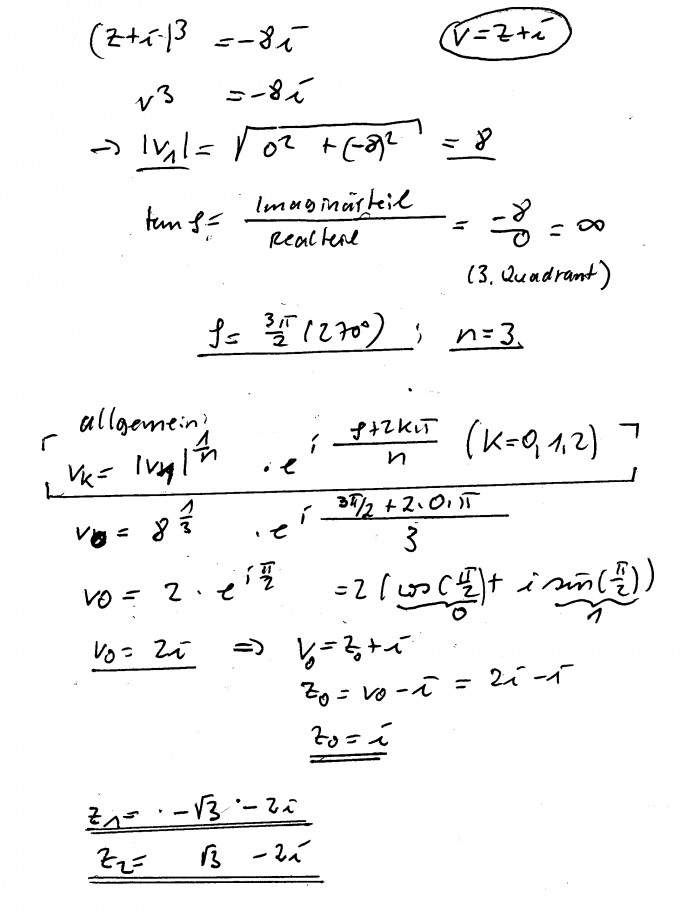 (z+i)³ = -8i   v = z+i
v³ = -8i
→ |v₁| = √(0² + (-8)²) = 8
tan φ = Imaginärteil / Realteil = -8/0 = ∞
(3. Quadrant)
φ = 3π/2 (270°) ; n=3.
allgemein:
vₖ = |v₁|^(1/n) · e^(i (φ+2kπ)/n) (k=0,1,2)
v₀ = 8^(1/3) · e^(i (3π/2 + 2·0·π)/3)
v₀ = 2 · e^(i π/2) = 2 (cos(π/2) + i sin(π/2))
0 1
v₀ = 2i ⇒ v₀ = z₀ + i
z₀ = v₀ - i = 2i - i
z₀ = i
z₁ = -√3 - 2i
z₂ = √3 - 2i